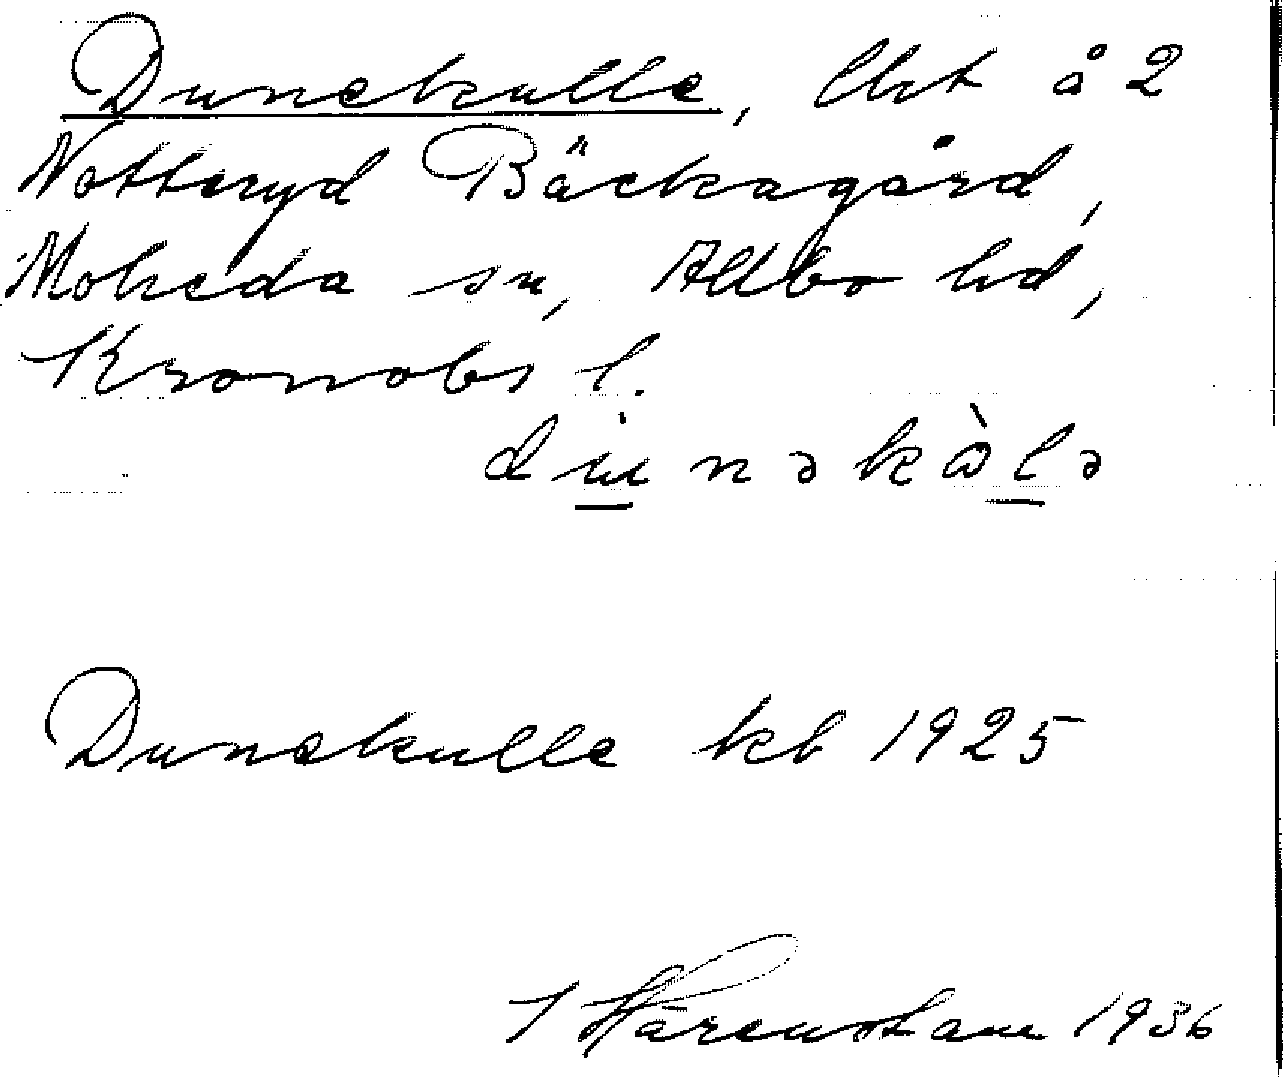 Dunekulle, lht å 2
Notteryd Bäckagård,
Moheda sn, Allbo hd,
Kronobs l.
dùnəkàlə
Dunekulle kb 1925
I Härenstam 1936